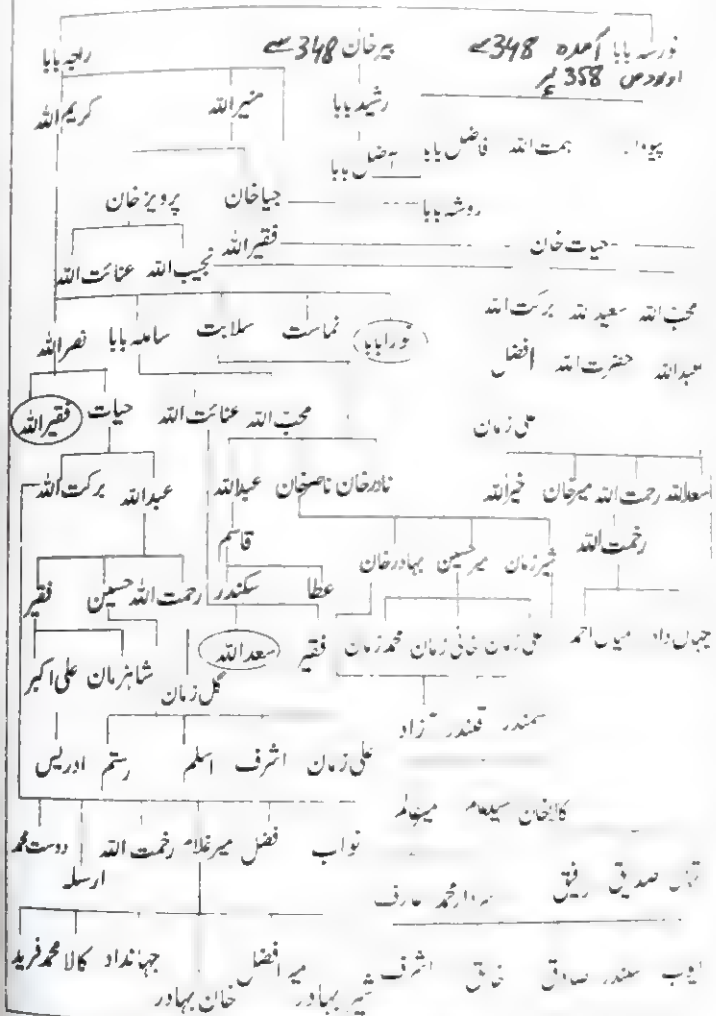 نورشہ بابا آمدہ 348 سے پیرخان 348 سے راجہ بابا
اولاد ص 358 پر
رشید بابا منیراللہ کریم اللہ
ہمت اللہ فاضل بابا افضل بابا
روشہ بابا جیاخان پرویزخان
حیات خان فقیراللہ
نجیب اللہ عنائت اللہ
محب اللہ سعیداللہ برکت اللہ
نورابابا نماست سلابت ساملہ بابا نصراللہ
عبداللہ حضرت اللہ افضل
محب اللہ عنائت اللہ حیات فقیراللہ
علی زمان
اسعداللہ رحمت اللہ میرخان خیراللہ نادرخان ناصرخان عبداللہ عبداللہ برکت اللہ
رخمت اللہ قاسم
شیرزمان میرحسین بہادرخان عطا سکندر رحمت اللہ حسین فقیر
جہاں داد میاں احمد علی زمان خانی زمان محمدزمان فقیر سعداللہ گل زمان شاہزمان علی اکبر
سمندر قلندر آزاد
علی زمان اشرف اسلم رستم ادریس
کالاخان میرعالم
نواب فضل میرغلام رخمت اللہ ارسلہ دوست محمد
صدیق رفیق سردارمحمد عارف
ایوب سکندر صادق خالق اشرف شیربہادر میرافضل خان بہادر جہانداد کالا محمدفرید